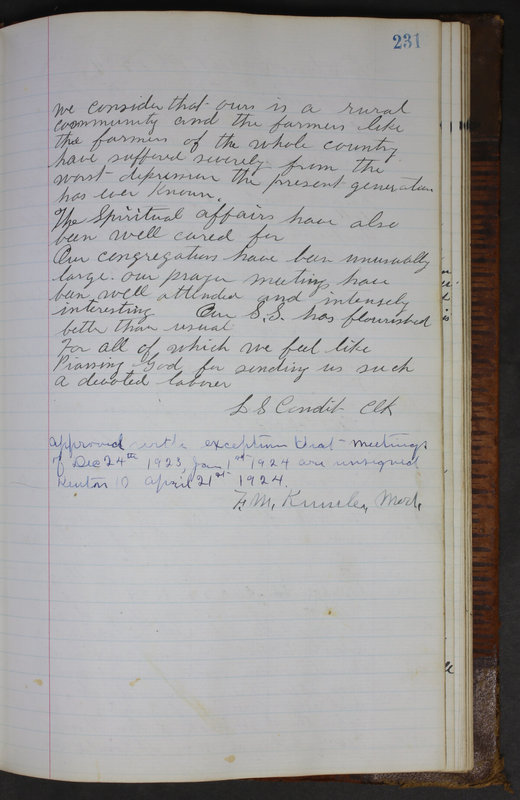 231
we consider that ours is a rural
community and the farmers like
the farmers of the whole country
have suffered severely from the
worst depression the present generation
has ever known.
The Spiritual affairs have also
been well cared for
Our congregations have been unusually
large. our prayer meetings have
been well attended and intensely
interesting Our S.S. has flourished
better than usual
For all of which we feel like
Praising God for sending us such
a devoted laborer
L S Condit Clk
Approved with exception that meetings
of Dec 24th 1923, Jan 1st 1924 are unsigned
April 21st 1924.
F. M. Mod.